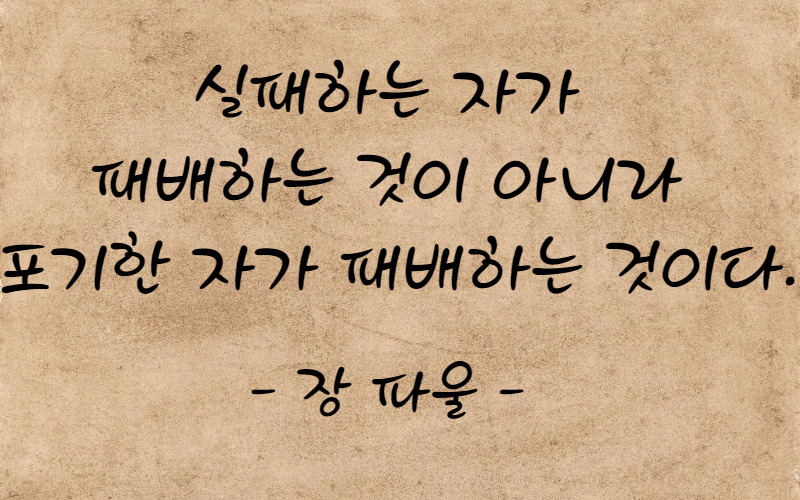 실패하는 자가
패배하는 것이 아니라
포기한 자가 패배하는 것이다.
- 장 파울 -